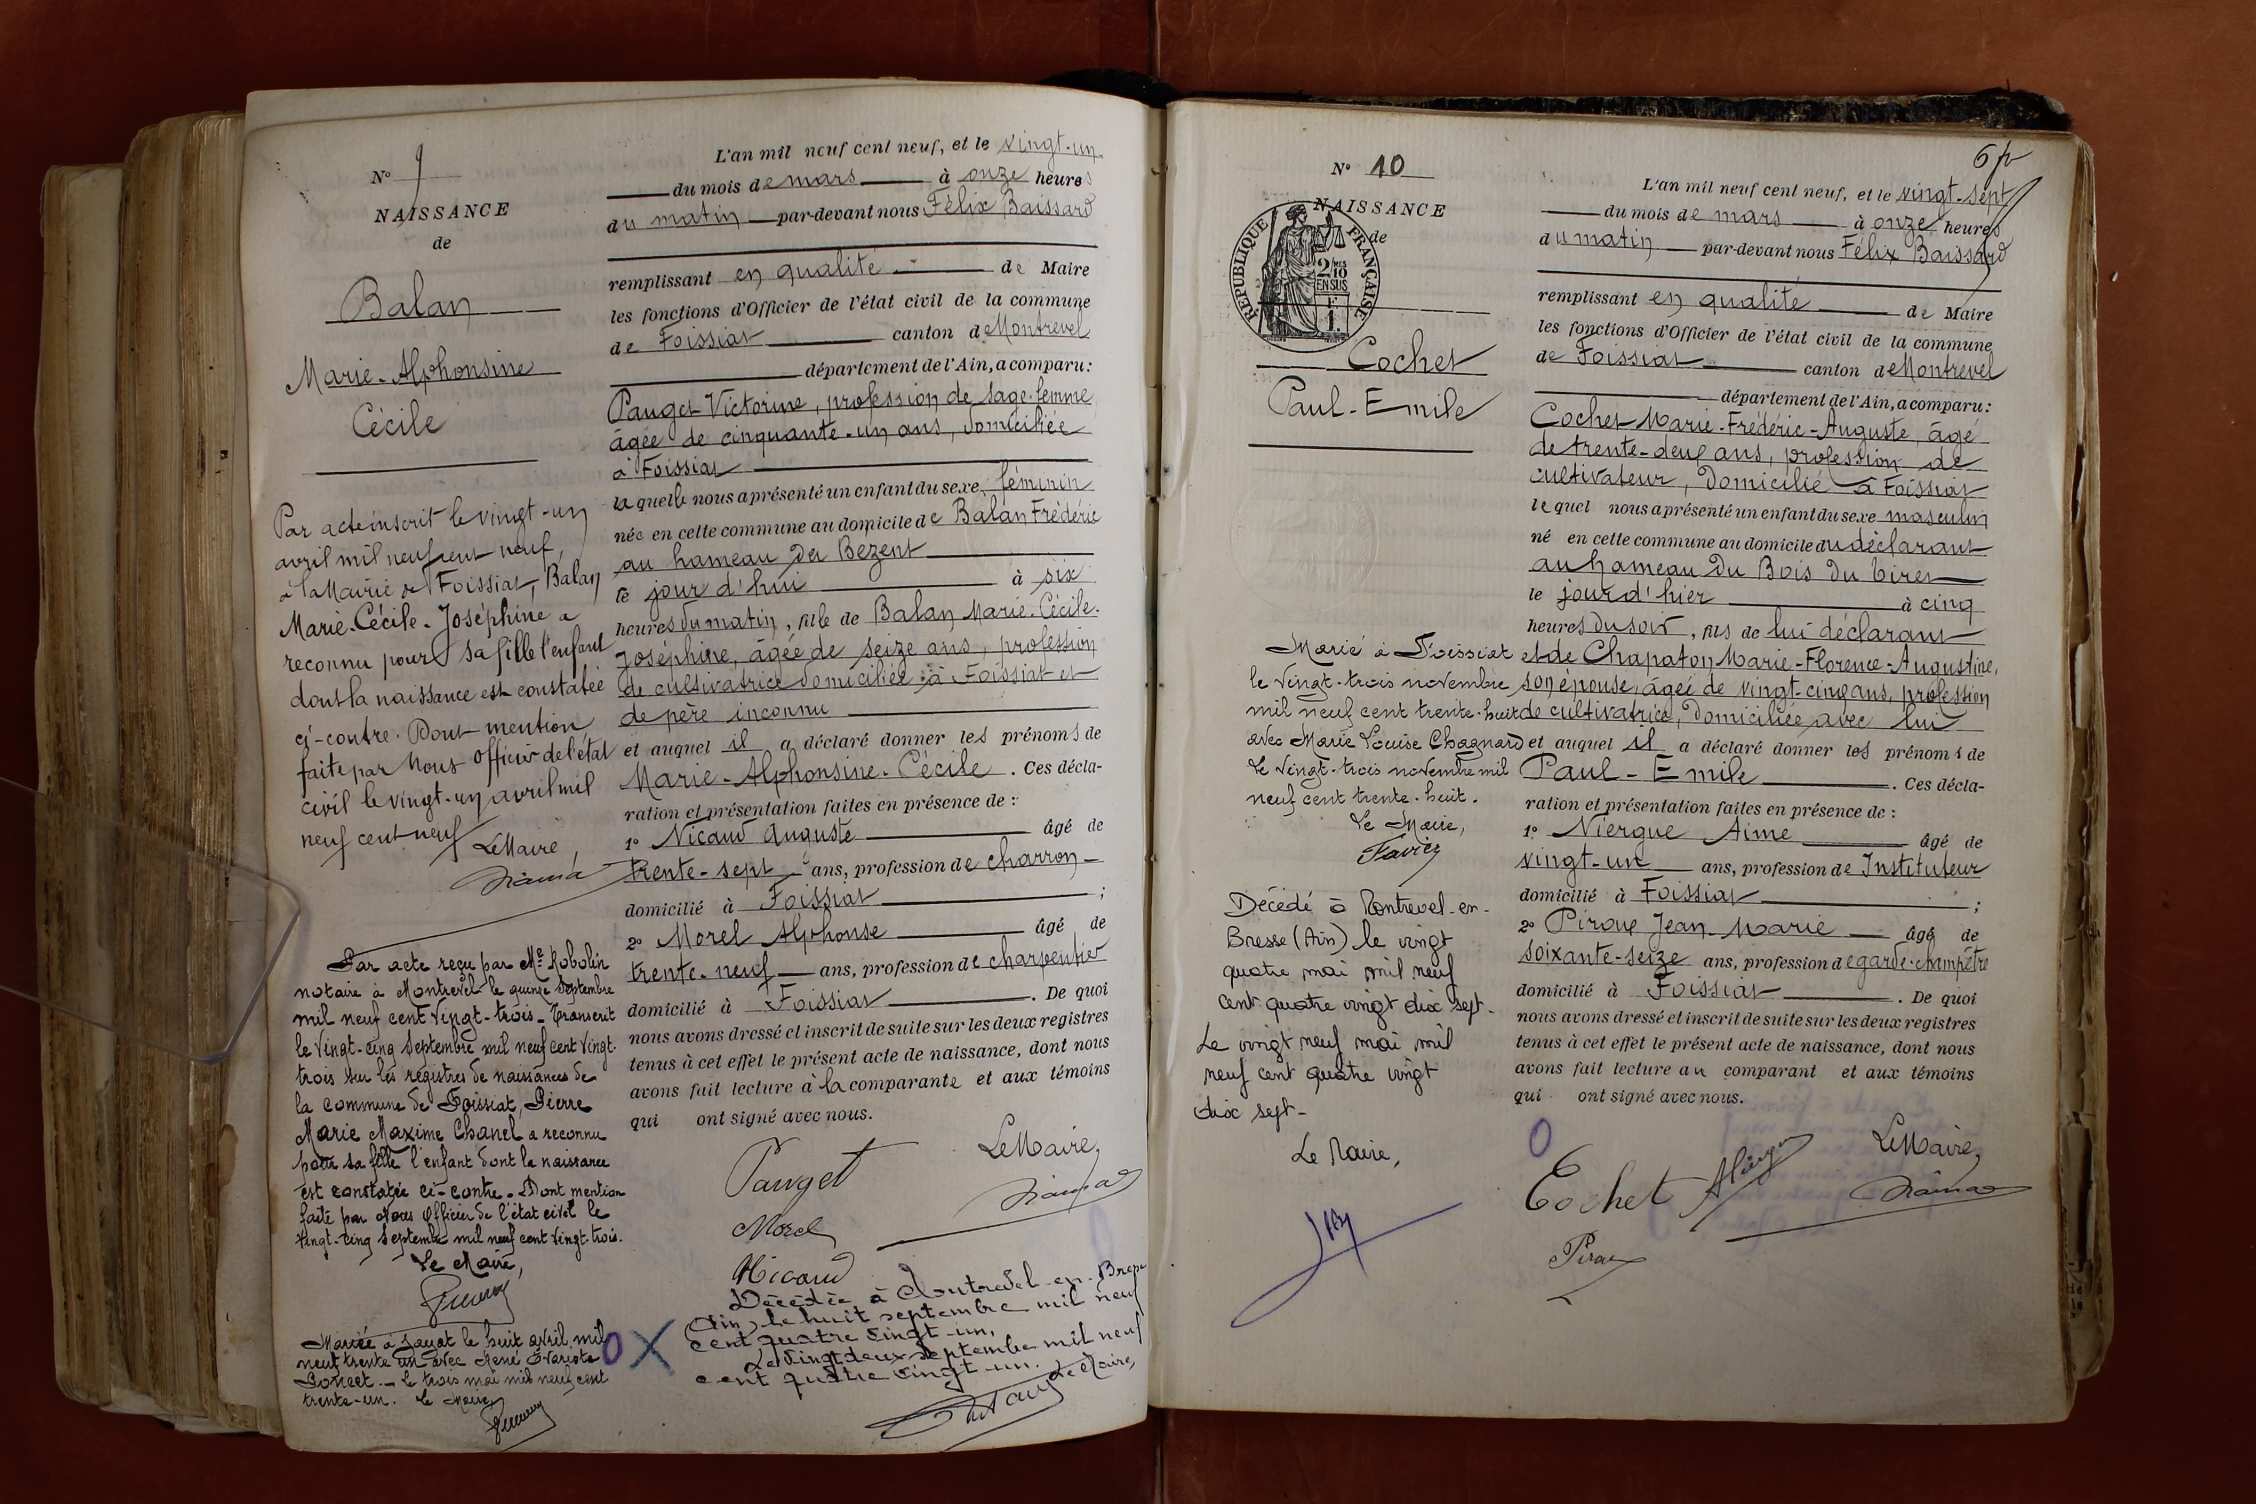 N° 9
NAISSANCE
de
Balan
Marie-Alphonsine
Cécile
Par acte inscrit le vingt-un
avril mil neuf cent neuf,
à la Mairie de Foissiat, Balan
Marie-Cécile-Joséphine a
reconnu pour sa fille l'enfant
dont la naissance est constatée
ci-contre. Dont mention
faite par Nous Officier de l'état
civil le vingt-un avril mil
neuf cent neuf
Le Maire,
Par acte reçu par Me Robolin
notaire à Montrevel le quinze Septembre
mil neuf cent vingt-trois - Transcrit
le vingt-cinq Septembre mil neuf cent vingt-
trois sur les registres de naissances de
la commune de Foissiat, Pierre
Marie Maxime Chanel a reconnu
pour sa fille l'enfant dont la naissance
est constatée ci-contre. Dont mention
faite par Nous Officier de l'état civil le
vingt-cinq Septembre mil neuf cent vingt-trois.
Le Maire,
Mariée à Jayat le huit avril mil
neuf trente un avec René Évariste
Poncet - le trois mai mil neuf cent
trente-un. Le Maire
L'an mil neuf cent neuf, et le vingt-un
du mois de mars à onze heures
du matin par-devant nous Félix Baissard
remplissant en qualité de Maire
les fonctions d'Officier de l'état civil de la commune
de Foissiat canton de Montrevel
département de l'Ain, a comparu :
Pauget Victorine, profession de sage-femme
âgée de cinquante-un ans, domiciliée
à Foissiat
laquelle nous a présenté un enfant du sexe féminin
née en cette commune au domicile de Balan Frédéric
au hameau du Bezent
le jour d'hui à six
heures du matin, fille de Balan Marie-Cécile-
Joséphine, âgée de seize ans, profession
de cultivatrice domiciliée à Foissiat et
de père inconnu
et auquel il a déclaré donner les prénoms de
Marie-Alphonsine-Cécile. Ces décla-
ration et présentation faites en présence de :
1° Nicaud Auguste âgé de
trente-sept ans, profession de charron
domicilié à Foissiat ;
2° Morel Alphonse âgé de
trente-neuf ans, profession de charpentier
domicilié à Foissiat. De quoi
nous avons dressé et inscrit de suite sur les deux registres
tenus à cet effet le présent acte de naissance, dont nous
avons fait lecture à la comparante et aux témoins
qui ont signé avec nous.
Pauget
Le Maire,
Morel
Nicaud
Décédée à Montrevel-en-Bresse
(Ain) le huit septembre mil neuf
cent quatre vingt-un.
Le vingt deux septembre mil neuf
cent quatre vingt-un.
Le Maire,
O X
6
N° 10
NAISSANCE
de
RÉPUBLIQUE FRANÇAISE
2/10
EN SUS
Cochet
Paul-Emile
Marié à Foissiat
le vingt-trois novembre
mil neuf cent trente-huit
avec Marie Louise Chagnard
le vingt-trois novembre mil
neuf cent trente-huit.
Le Maire,
Favier
Décédé à Montrevel-en-
Bresse (Ain) le vingt
quatre mai mil neuf
cent quatre vingt dix sept -
Le vingt neuf mai mil
neuf cent quatre vingt
dix sept -
Le Maire,
L'an mil neuf cent neuf, et le vingt-sept
du mois de mars à onze heures
du matin par-devant nous Félix Baissard
remplissant en qualité de Maire
les fonctions d'Officier de l'état civil de la commune
de Foissiat canton de Montrevel
département de l'Ain, a comparu :
Cochet Marie-Frédéric-Auguste, âgé
de trente-deux ans, profession de
cultivateur, domicilié à Foissiat
lequel nous a présenté un enfant du sexe masculin
né en cette commune au domicile du déclarant
au hameau du Bois du
le jour d'hier à cinq
heures du soir, fils de lui déclarant
et de Chapaton Marie-Florence-Augustine,
son épouse, âgée de vingt-cinq ans, profession
de cultivatrice, domiciliée avec lui
et auquel il a déclaré donner les prénoms de
Paul-Emile. Ces décla-
ration et présentation faites en présence de :
1° Niergue Aimé âgé de
vingt-un ans, profession de Instituteur
domicilié à Foissiat ;
2° Piroux Jean-Marie âgé de
soixante-seize ans, profession de garde-champêtre
domicilié à Foissiat. De quoi
nous avons dressé et inscrit de suite sur les deux registres
tenus à cet effet le présent acte de naissance, dont nous
avons fait lecture au comparant et aux témoins
qui ont signé avec nous.
O
Le Maire,
Cochet